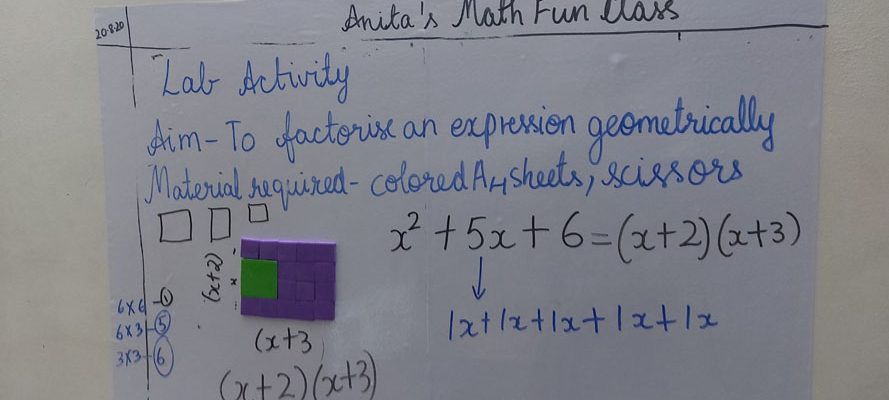 Anita's Math Fun Class
20.8.20
Lab Activity
Aim - To factorise an expression geometrically
Material required - colored A4 sheets, scissors
x² + 5x + 6 = (x+2)(x+3)
1x+1x+1x+1x+1x
(x+2)
x
6x6 -
6x3 - 5
3x3 - 6
(x+3
(x+2)(x+3)